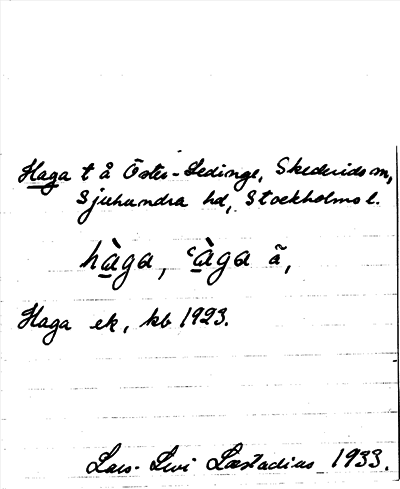 Haga t å Öster-Ledinge, Skederids sn,
Sjuhundra hd, Stockholms l.
hàga, ʿàga ã,
Haga ek, kb 1923.
Lars-Levi Læstadius 1933.